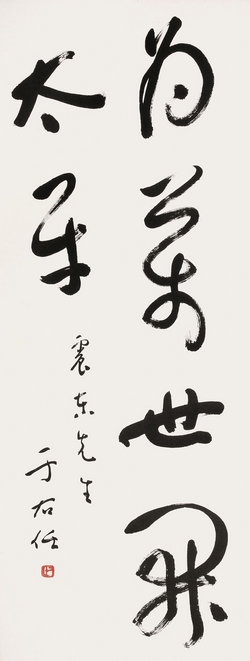 为万世開
太平
震东先生
于右任